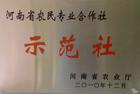 河南省农民专业合作社
示范社
河南省农业厅
二〇一〇年十二月